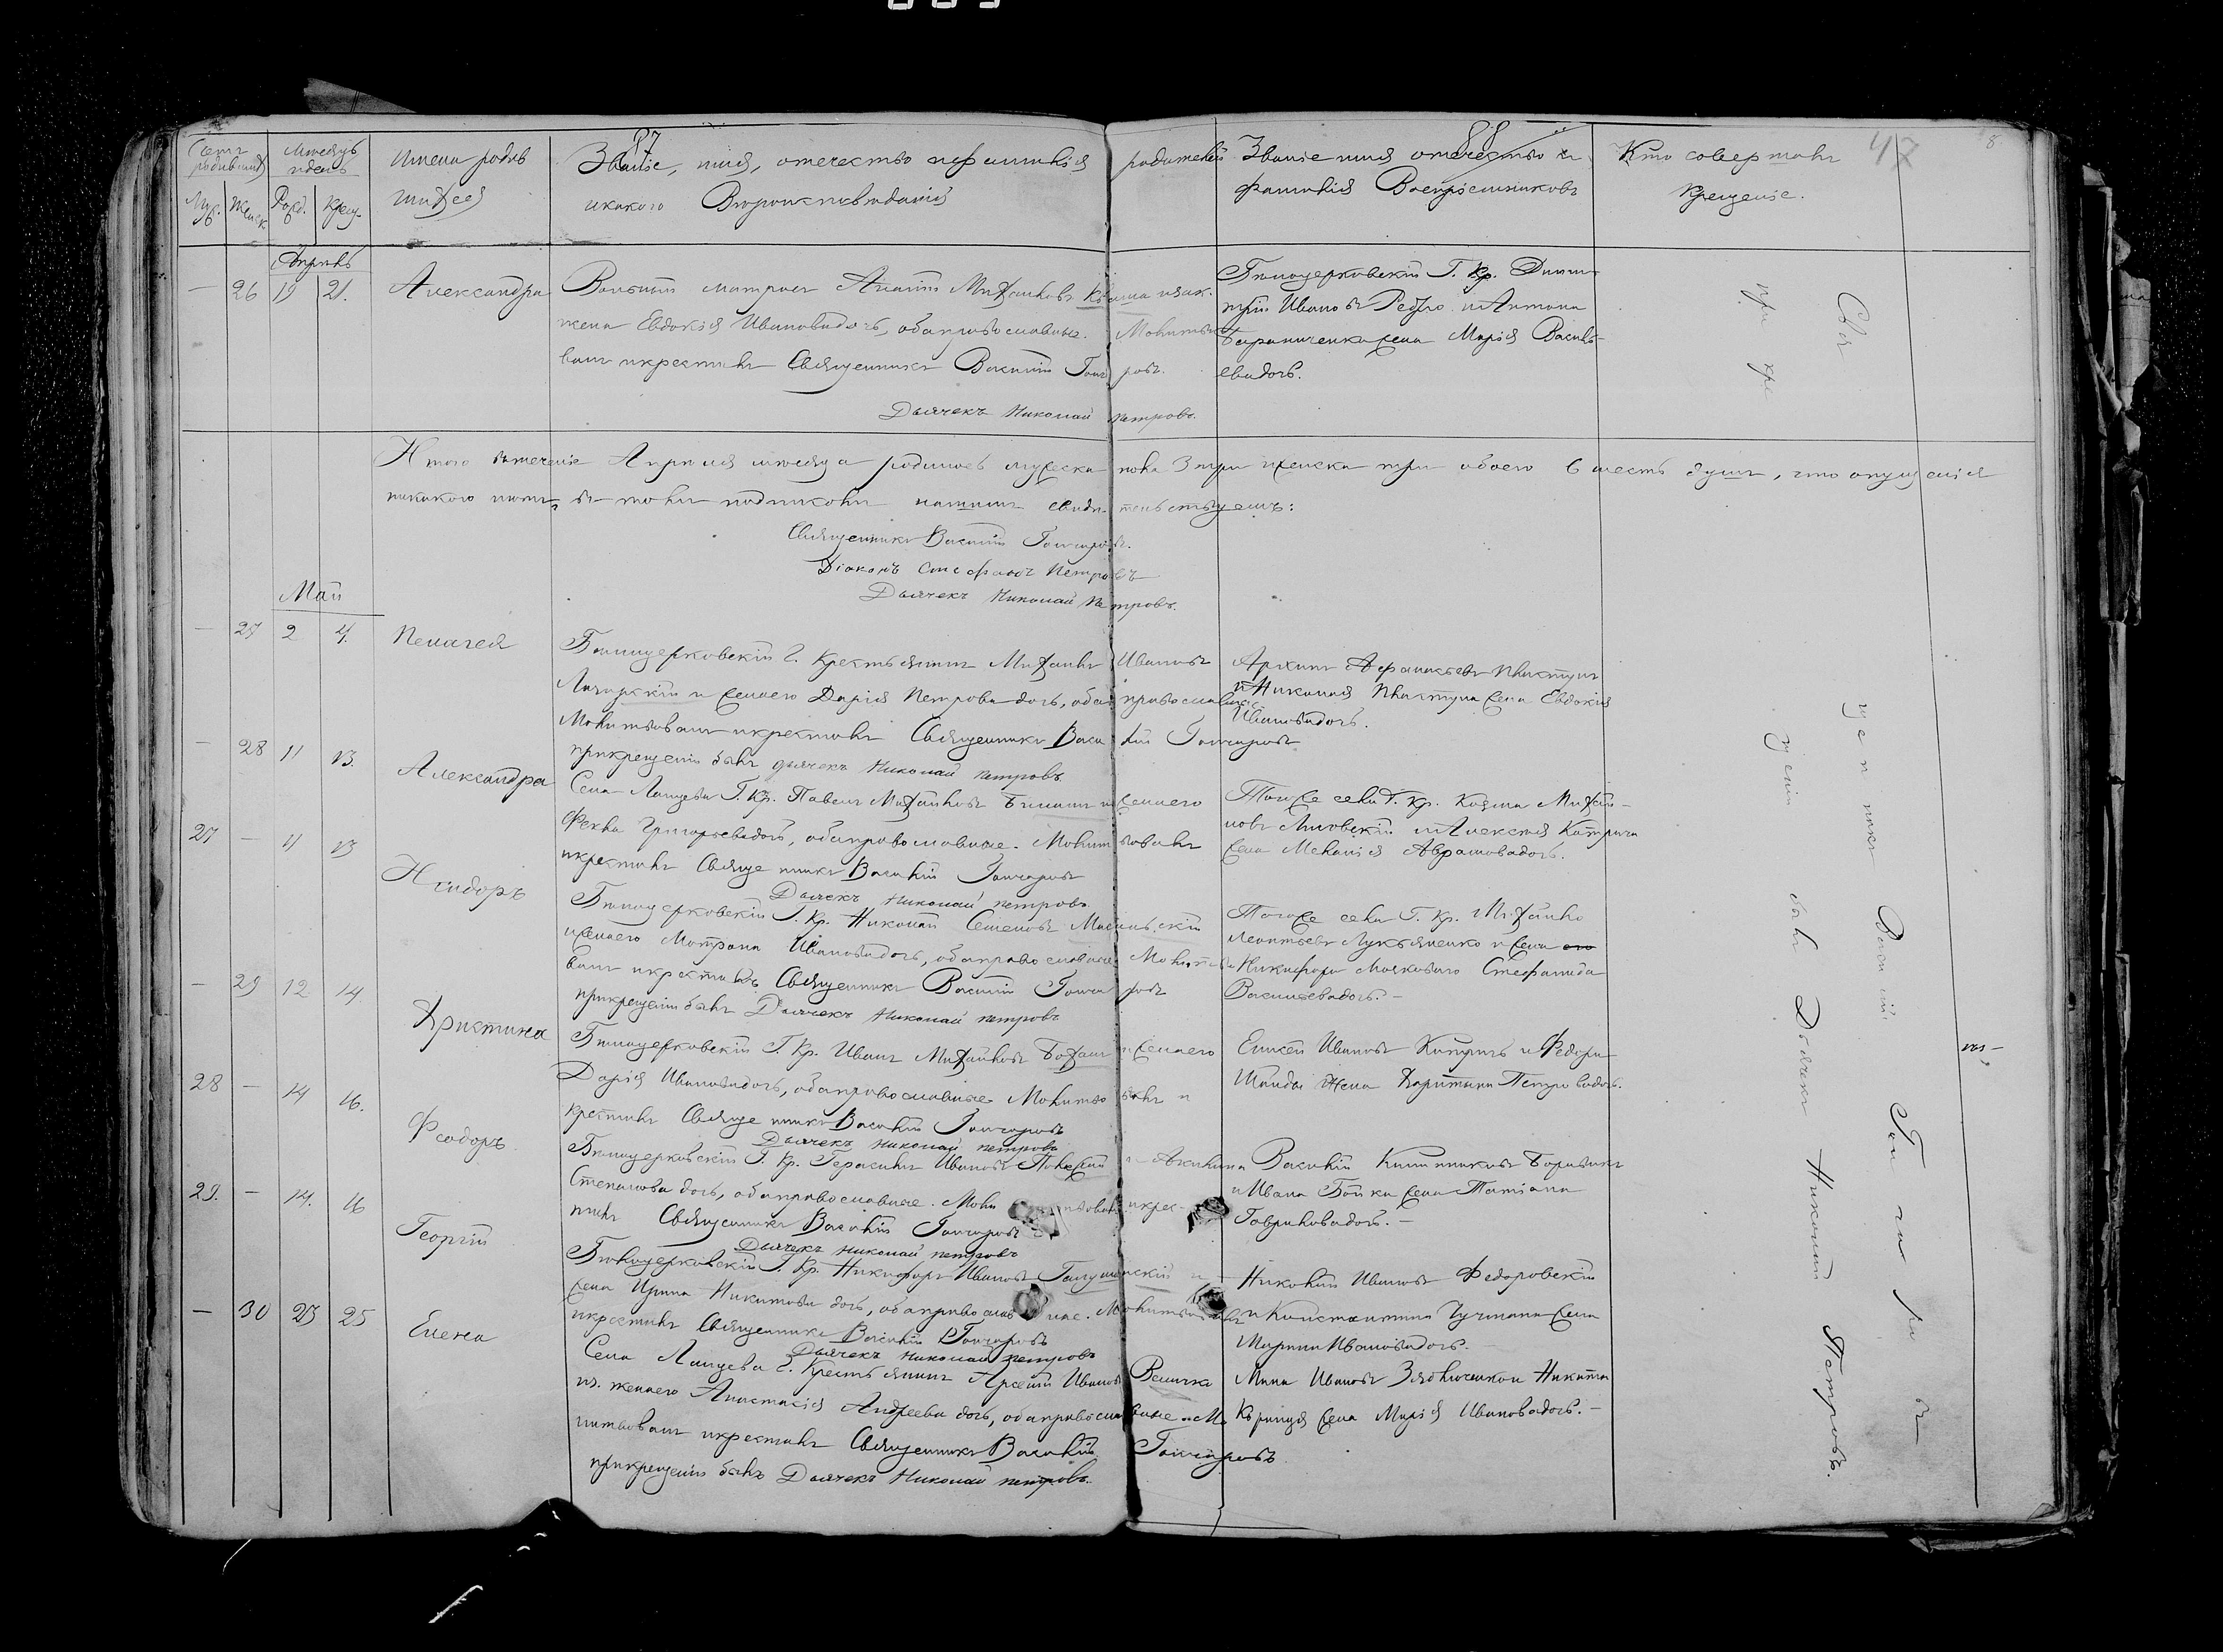 87
88
47
8
Счетъ родившихся
Мѣсяцъ и день
Имена родив
шихся
Званіе, имя, отечество и фамилія родителей
и какого Вѣроисповѣданія
Званіе имя отечество и
фамилія Воспріемниковъ
Кто совершалъ
Крещеніе.
Муж. Женск. Рожд. Крещ.
Апрѣль
— 26 19 21. Александра
Вольный матросъ Михаиловъ
жена Евдокія Иванова дочь, оба православные. Молитво
валъ и крестилъ Священникъ Василій Гончаровъ.
Дьячекъ Николай Петровъ.
Бѣлоцерковскій Г. Кр. Дими
трій Ивановъ и Антона
жена Марія Василь
ева дочь.
Итого втеченіе Апрѣля мѣсяца родилось мужеска пола 3 три женска три обоего 6 шесть душъ, что опущенія
никакого нѣтъ, въ томъ подписомъ нашимъ свидѣтельствуемъ:
Священникъ Василій Гончаровъ.
Діаконъ Стефанъ Петровъ
Дьячекъ Николай Петровъ.
Май
— 27 2 4. Пелагея
Бѣлоцерковскій Г. Крестьянинъ Михаилъ Ивановъ
и жена его Дарія Петрова дочь, оба православные
Молитвовалъ и крестилъ Священникъ Василій Гончаровъ
при крещеніи былъ дьячекъ Николай Петровъ.
Архипъ Афанасьевъ Пластунъ
и Николая Пластуна жена Евдокія
Иванова дочь.
— 28 11 13. Александра
Села Лащева Г. Кр. Павелъ Михаиловъ и жена его
Фекла Григорьева дочь, оба православные. Молитвовалъ
и крестилъ Священникъ Василій Гончаровъ
Дьячекъ Николай Петровъ.
Тогоже села Г. Кр. Козма Михаи
ловъ и Алексѣя
жена Меланія Аврамова дочь.
27 — 11 13 Исидоръ
Бѣлоцерковскій Г. Кр. Николай Семеновъ
и жена его Матрона Иванова дочь, оба православные Молитво
валъ и крестилъ Священникъ Василій Гончаровъ
при крещеніи былъ Дьячекъ Николай Петровъ
Тогоже села Г. Кр. Михаилъ
Леонтьевъ Лукьяненко и жена
Никифора Стефанида
Васильева дочь. —
— 29 12 14. Христина
Бѣлоцерковскій Г. Кр. Иванъ Михаиловъ и жена его
Дарія Иванова дочь, оба православные Молитвовалъ и
крестилъ Священникъ Василій Гончаровъ
Дьячекъ Николай Петровъ
Елисей Ивановъ и Федора
жена Харитина Петрова дочь.
28 — 14 16. Феодоръ
Бѣлоцерковскій Г. Кр. Герасимъ Ивановъ и Акилина
Степанова дочь, оба православные. Молитвовалъ и крес
тилъ Священникъ Василій Гончаровъ
Дьячекъ Николай Петровъ
Василій
и Ивана Бойка жена Татіана
Гаврилова дочь. —
29. — 14. 16 Георгій
Бѣлоцерковскій Г. Кр. Никифоръ Ивановъ и
жена Ирина Никитова дочь, оба православные. Молитвовалъ
и крестилъ Священникъ Василій Гончаровъ
Дьячекъ Николай Петровъ
Ивановъ Федоровскій
и Константина жена
Марина Иванова дочь.
— 30 23 25 Елена
Села Лащева Г. Крестьянинъ Арсеній Ивановъ Величко
и жена его Анастасія Андреева дочь, оба православные и Мо
литвовалъ и крестилъ Священникъ Василій Гончаровъ
при крещеніи былъ Дьячекъ Николай Петровъ.
Мина Ивановъ и Никиты
жена Марія Иванова дочь. —
Священникъ Василій Гончаровъ
при крещеніи былъ Дьячекъ Николай Петровъ.